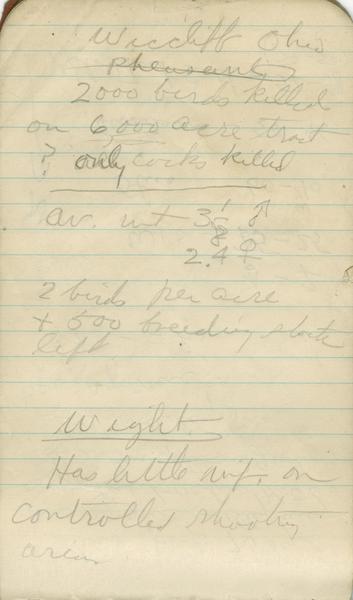 Wiccliff Ohio
pheasants
2000 birds killed
on 6,000 acre tract
? only cocks killed
av. wt 3 1/8 ♂
2.4 ♀
2 birds per acre
+ 500 breeding stock
left
Wight
Has little inf. on
controlled shooting
areas